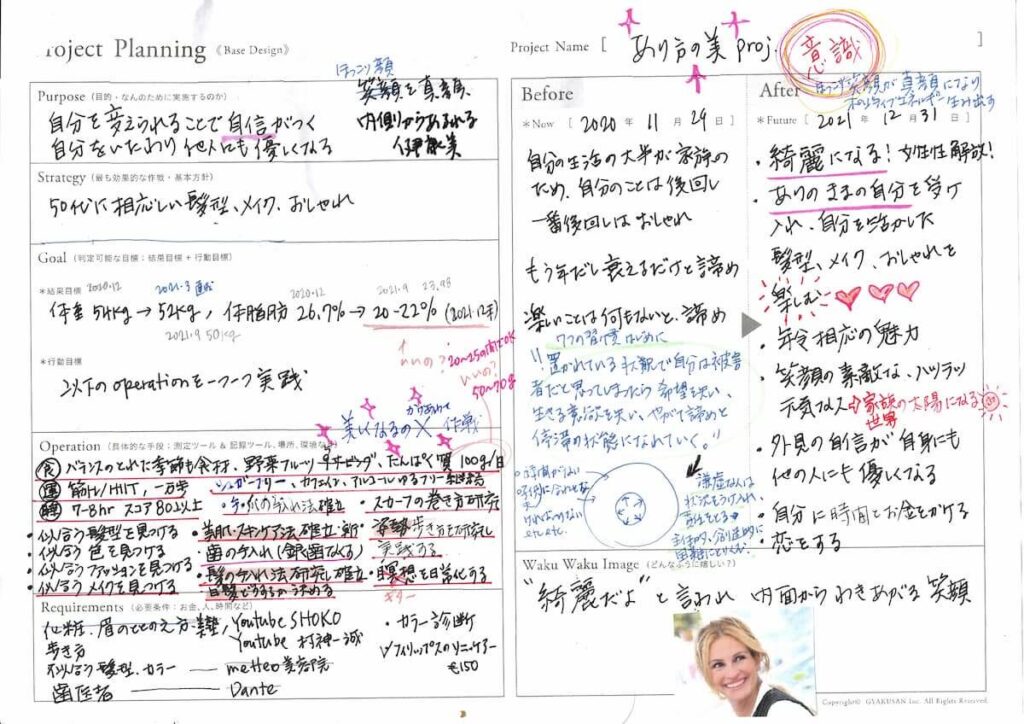 Project Planning 《Base Design》
Purpose (目的・なんのために実施するのか)
ほっこり顔
笑顔を真顔、
内側からあふれる
自分を変えられることで自信がつく
自分をいたわり 他人にも優しくなる
Strategy (最も効果的な作戦・基本方針)
50代に相応しい髪型、メイク、おしゃれ
Goal (判定可能な目標:結果目標 + 行動目標)
*結果目標 2020.12 2021.3 2020.12 2021.9 23.98
体重 54kg → 52kg, 体脂肪 26.7% → 20-22% (2021.12末)
2021.9 50kg
いいの? 20~25の間でOK
いいの?
50~70g
*行動目標
以下のoperationを一つ一つ実践
美しくなるの 作戦
Operation (具体的な手段:測定ツール & 記録ツール、場所、環境など)
食 バランスのとれた季節の食材、野菜フルーツ サービング、たんぱく質 100g/日
運 筋トレ/HIIT, 一万歩
シュガーフリー、カフェイン、アルコールゆるフリー
睡 7-8hr スコア80以上
・手・爪の手入れ法確立
・スカーフの巻き方研究
・似合う髪型を見つける
・美肌・スキンケア法確立
・姿勢・歩き方を研究し
実践する
・似合う色を見つける
・歯の手入れ (銀歯なくる)
・似合うファッションを見つける
・髪の手入れ法研究し確立
・瞑想を日常化する
・似合うメイクを見つける
白髪どうするか決める
ギター
Requirements (必要条件:お金、人、時間など)
化粧、眉のととのえ方 Youtube SHOKO
歩き方 Youtube 村神一誠
似合う髪型、カラー — metteo 美容院
歯医者 — Dante
・カラー診断
フィリップスのソニッケアー
€150
Project Name [ あり方の美 proj. ]
意識
Before
*Now [ 2020 年 11 月 29 日 ]
自分の生活の大半が家族の
ため、自分のことは後回し
一番後回しは おしゃれ
もう年だし衰えるだけと諦め
楽しいことは何もないと、諦め
7つの習慣はじめに
"置かれている状況で自分は被害
者だと思ってしまったら希望を失い、
生きる意欲を失い、やがて諦めと
停滞の状態になれていく。"
etc. etc.
謙虚な人は
状況をうけ入れ、
責任をとる→
主体的、創造的に
困難にとりくむ。
After
ほっこり笑顔が真顔になり
ポジティブエネルギー生み出す
*Future [ 2021 年 12 月 31 日 ]
・綺麗になる! 女性性解放!
・ありのままの自分を受け
入れ、自分を活かした
髪型、メイク、おしゃれを
楽しむ
・年令相応の魅力
・笑顔の素敵な、ハツラツ
元気な人→家族の太陽になる
世界
・外見の自信が自身にも
他の人にも優しくなる
・自分に時間とお金をかける
・恋をする
Waku Waku Image (どんなふうに嬉しい?)
"綺麗だよ" と言われ 内面からわきあがる笑顔
Copyright© GYAKUSAN Inc. All Rights Reserved.